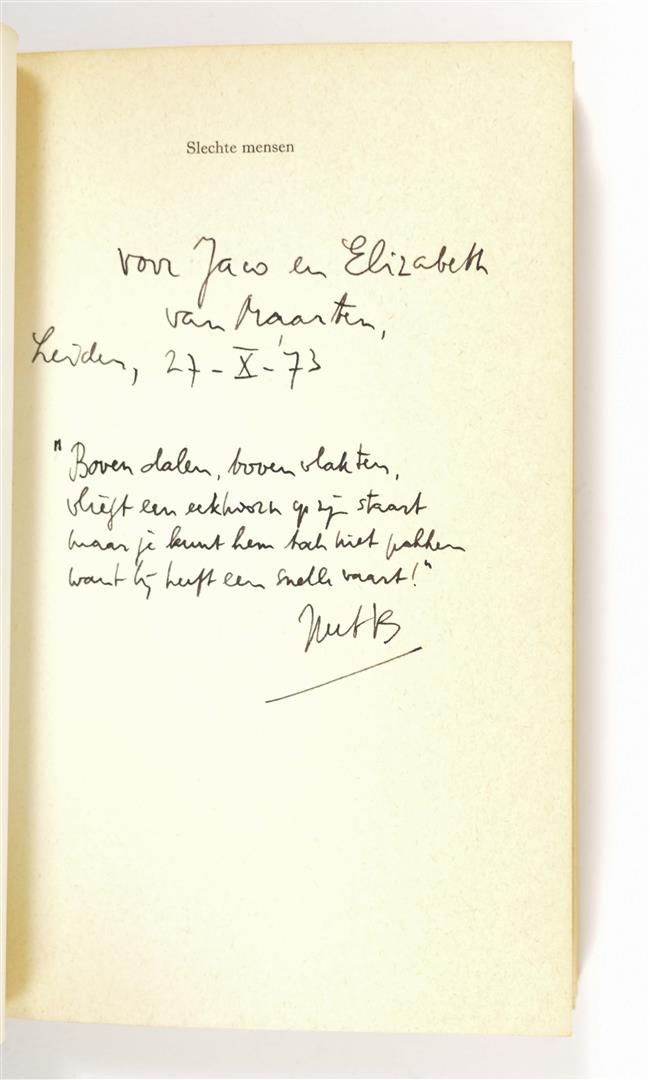 Slechte mensen
voor Jaco en Elizabeth
van Maarten,
Leiden, 27-X-'73
"Boven dalen, boven vlakten,
vliegt een eekhoorn op zijn staart
maar je kunt hem toch niet pakken
want hij heeft een snelle vaart!"